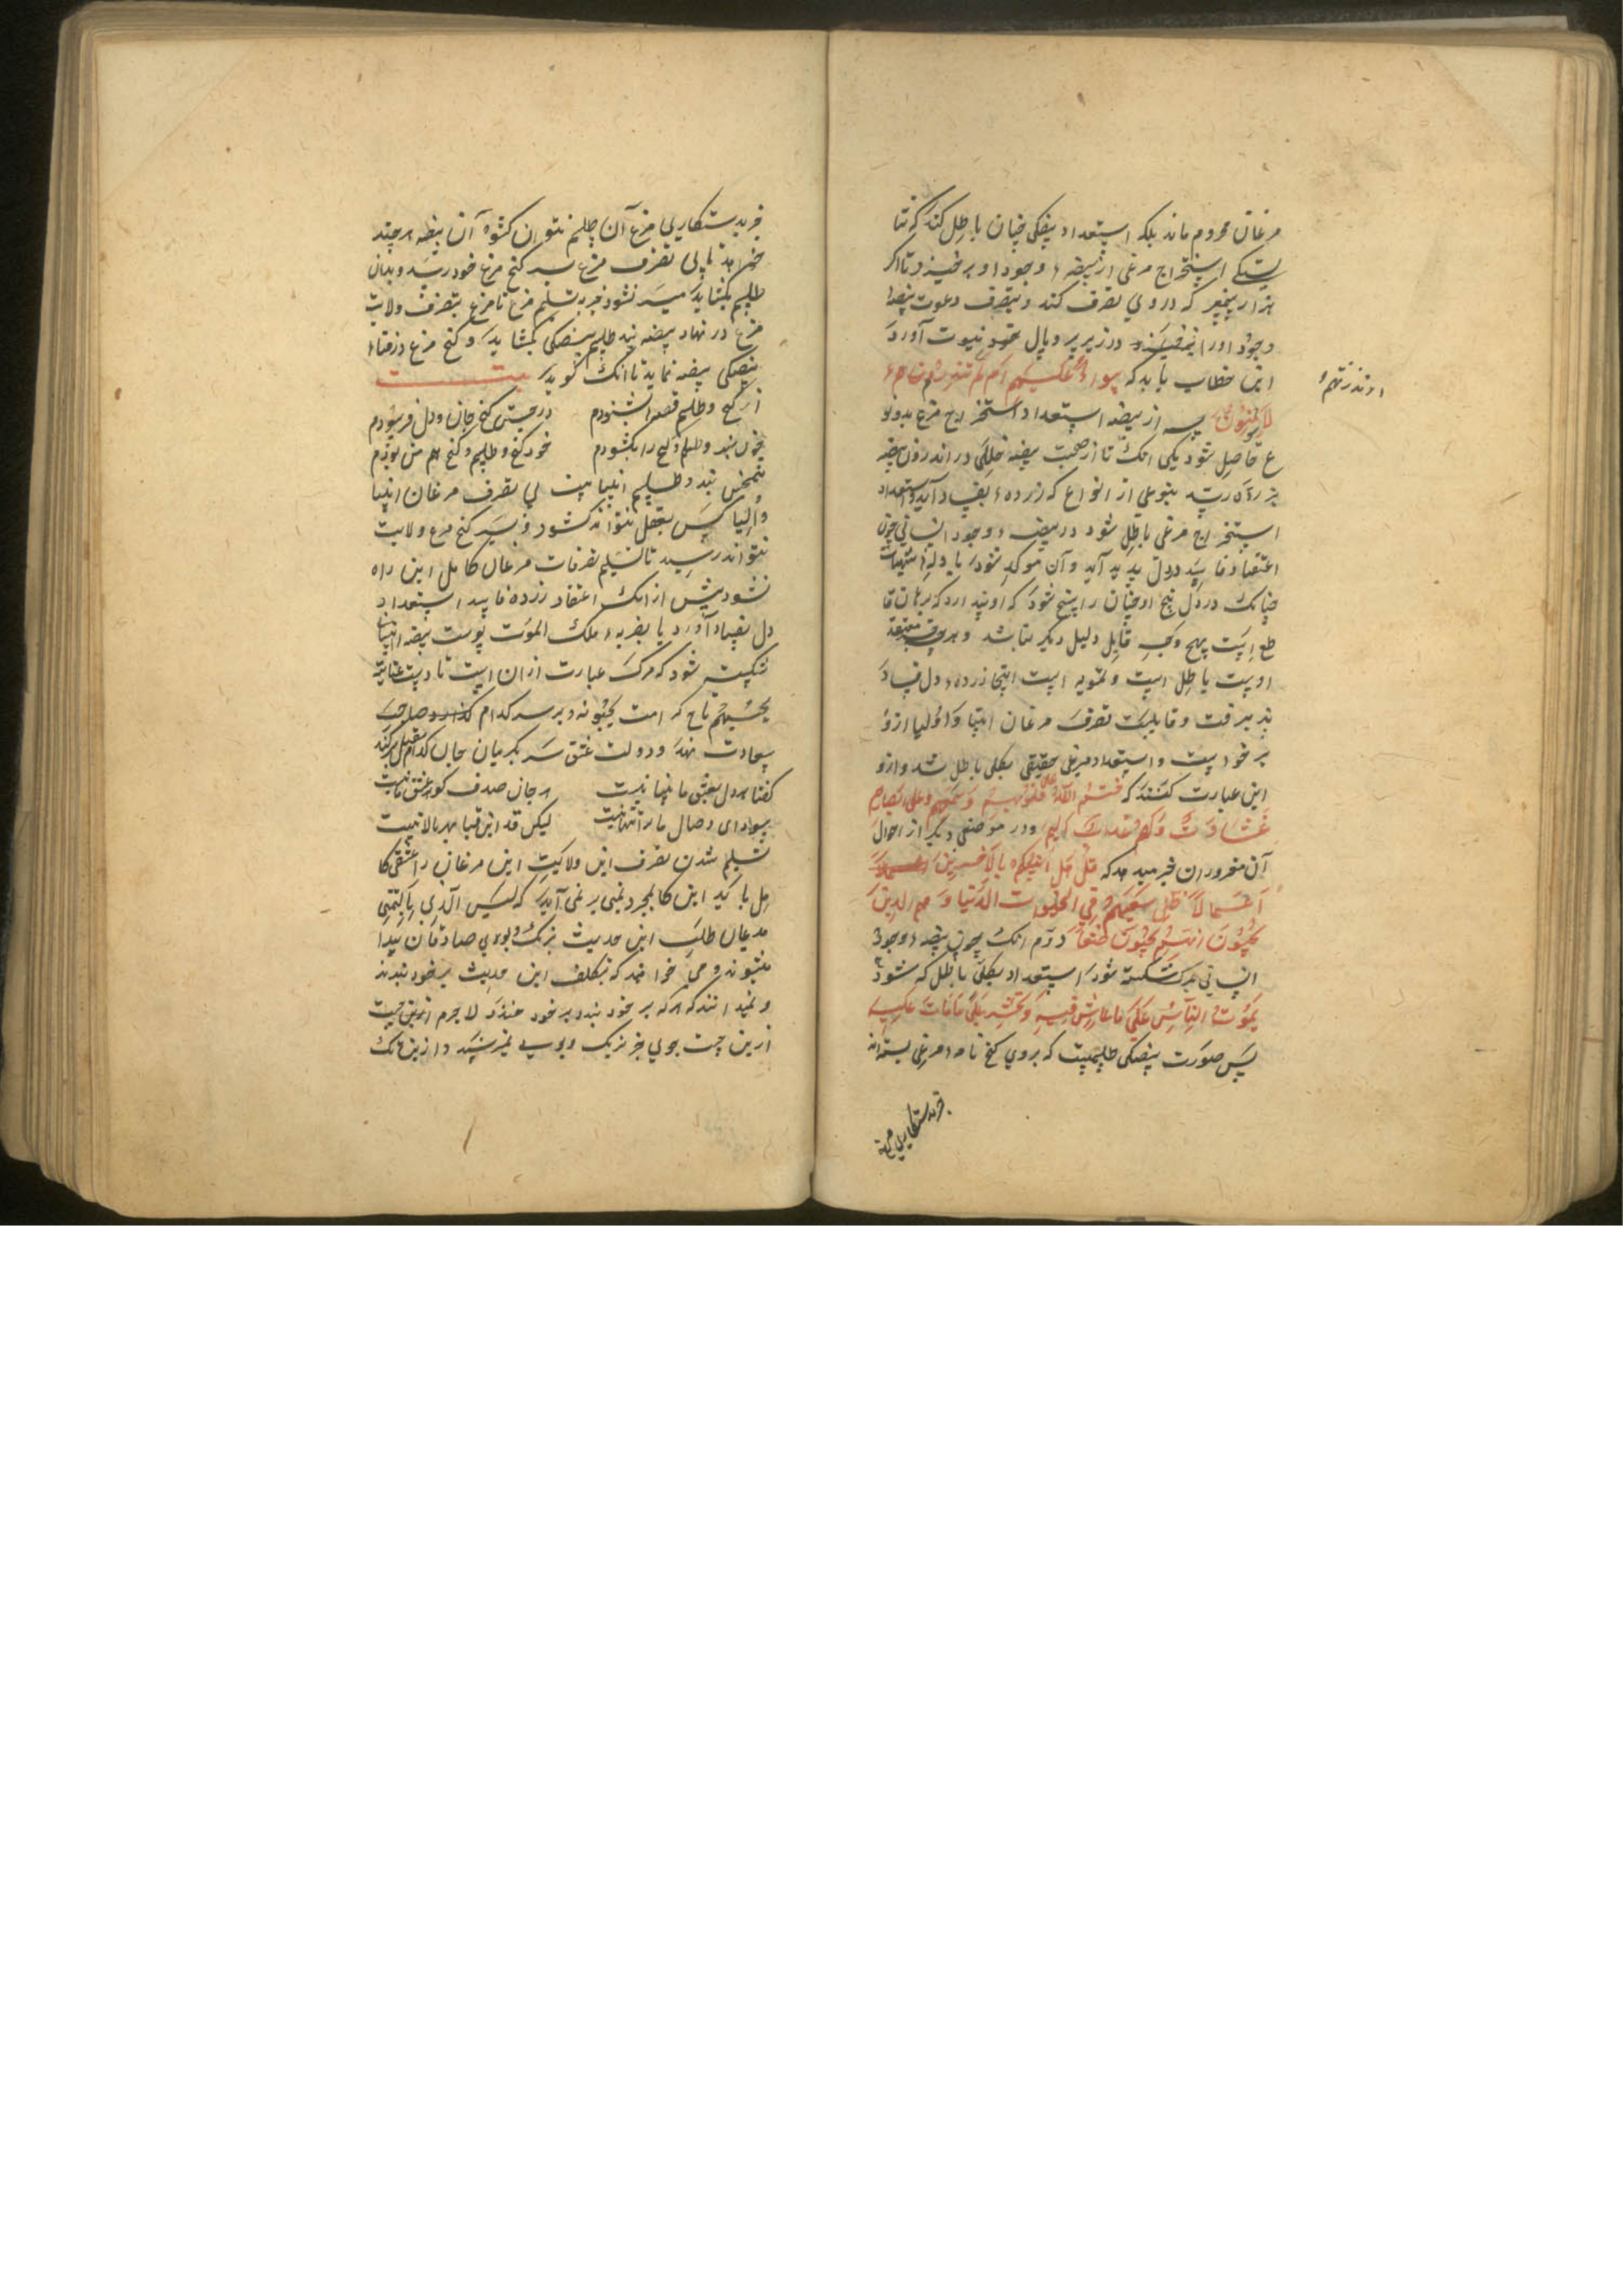 مرغان محروم ماند بلکه استعداد بیضکی چنان باطل کند که شا
یستکی استخراج مرغی از بیضهٔ وجود او برخیزد تا اگر
هزار پیغمبر که در وی تصرف کند و بتصرف دعوت بیضهٔ
وجود او را در زیر پر و بال نبوت آورد
این خطاب یابد که سواء علیهم ام لم تنذرهم
ءانذرتهم
لا یؤمنون پس از بیضه استعداد استخراج مرغ بدو نو
ع حاصل شود یکی انک تا از صحبت بیضه خللی در اندرون بیضه
بزرده رسد بنوعی از انواع که زرده بفساد آید و استعداد
استخراج مرغی باطل شود در بیضهٔ وجود انسانی چون
اعتقاد فاسد در دل پدید آید و آن موکد شود با دلهٔ شبهات
چنانک در دل او چنان راسخ شود که او پندارد که برهان قا
طع است بهیچ وجه قابل دلیل دیگر نباشد و هرچه معتقد
اوست باطل است و تمویه است اینجا زردهٔ دل فساد
پذیرفت و قابلیت تصرف مرغان انبیا و اولیا ازو
برخواست و استعداد مرغی حقیقی بکلی باطل شد و ازو
این عبارت کنند که ختم الله علی قلوبهم و سمعهم و علی ابصارهم
غشاوة و لهم عذاب الیم و در موضعی دیگر از احوال
آن مغروران خبر میدهد که قل هل انبئکم بالاخسرین
اعمالا ضل سعیهم فی الحیوة الدنیا و هم الذین
یحسبون انهم یحسنون صنعا دوم انک چون بیضهٔ وجود
انسانی بمرک شکسته شود استعداد بکلی باطل که شود
یموت الناس علی ما عاش فیه و یحشر علی ما مات علیه
پس صورت بیضکی طلسمیست که بر روی کنج نامهٔ مرغی بسته‌اند
جز بدستکاری مرغ
جز بدستکاری مرغ آن طلسم نتوان کشود آن بیضه هرچند
خواهد تا بی تصرف مرغ بسر کنج مرغ خود رسد و بدان
طلسم بکشاید میسر نشود جز بتسلیم مرغ تا مرغ بتصرف ولایت
مرغ در نهاد بیضه بند طلسم بیضکی بکشاید و کنج مرغ در قفاء
بیضکی بیضه نماید تا انک کوید بیت
از کنج و طلسم قصه‌ها بشنودم در جستن کنج جان و دل فرسودم
چون بند و طلسم کنج را بکشودم خود کنج و طلسم و کنج هم من بودم
همچنین بند و طلسم انبیا نیست بی تصرف مرغان انبیا
و اولیا کس بعقل نتواند کشود و بسر کنج مرغ ولایت
نتواند رسید تا تسلیم تصرفات مرغان کامل این راه
نشود پیش از انک اعتقاد زرده فاسد استعداد
دل بفساد آورد یا بضربهٔ ملک الموت پوست بیضه
شکسته شود که مرک عبارت از ان است تا دست عنایت
یحبهم تاج کرامت یحبونه بر سر کدام صاحب
سعادت نهد و دولت عشق سر بکریبان جان کدام مقبل برکند
کفتا هر دل بعشق ما بینا نیست هر جان صدف کوهر عشق ما نیست
سودای وصال ما ترا تنها نیست لیکن قد این قبا بهر بالا نیست
تسلیم شدن تصرف این ولایت این مرغان را عشقی کا
مل باید این کا بمجرد تمنی بر نمی آید که لیس الدین بالتمنی
مدعیان طلب این حدیث برنک و بوی صادقان پیدا
میشوند و می خواهند که بتکلف این حدیث بر خود بندند
و نمیدانند که هرکه بر خود بندد بر خود خندد لا جرم ازین جست
ازین جست جوی جز برنک و بویی نمیرسند و ازین